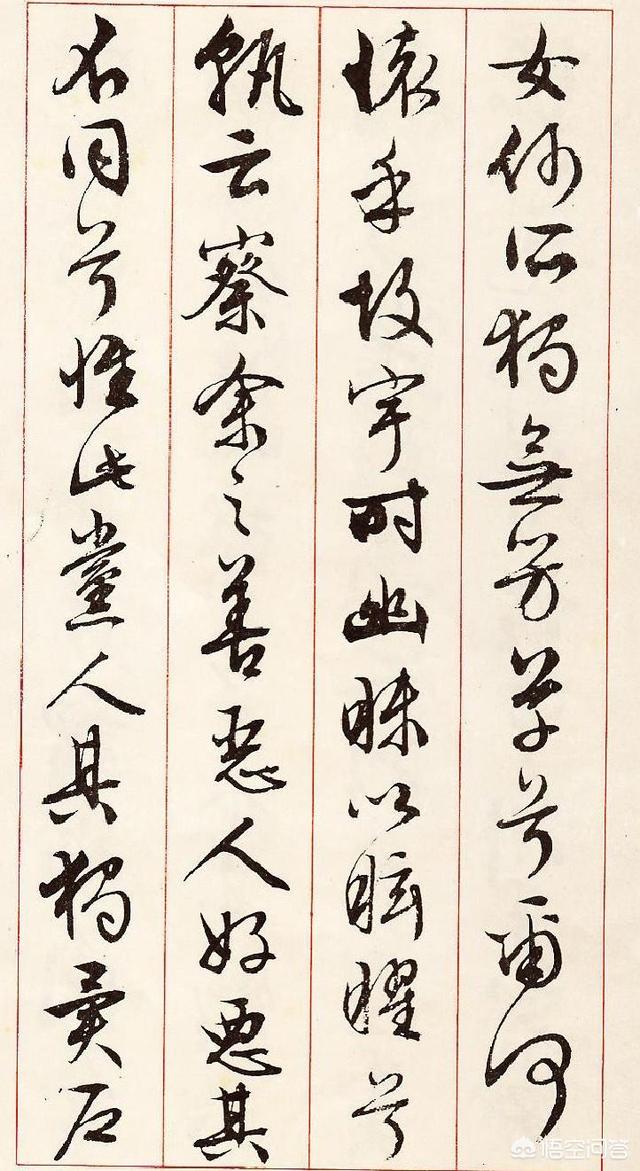 女何所獨無芳草兮爾何
懷乎故宇時幽昧以眩曜兮
孰云察余之善惡人好惡其
不同兮惟此黨人其獨異戶
悟空问答